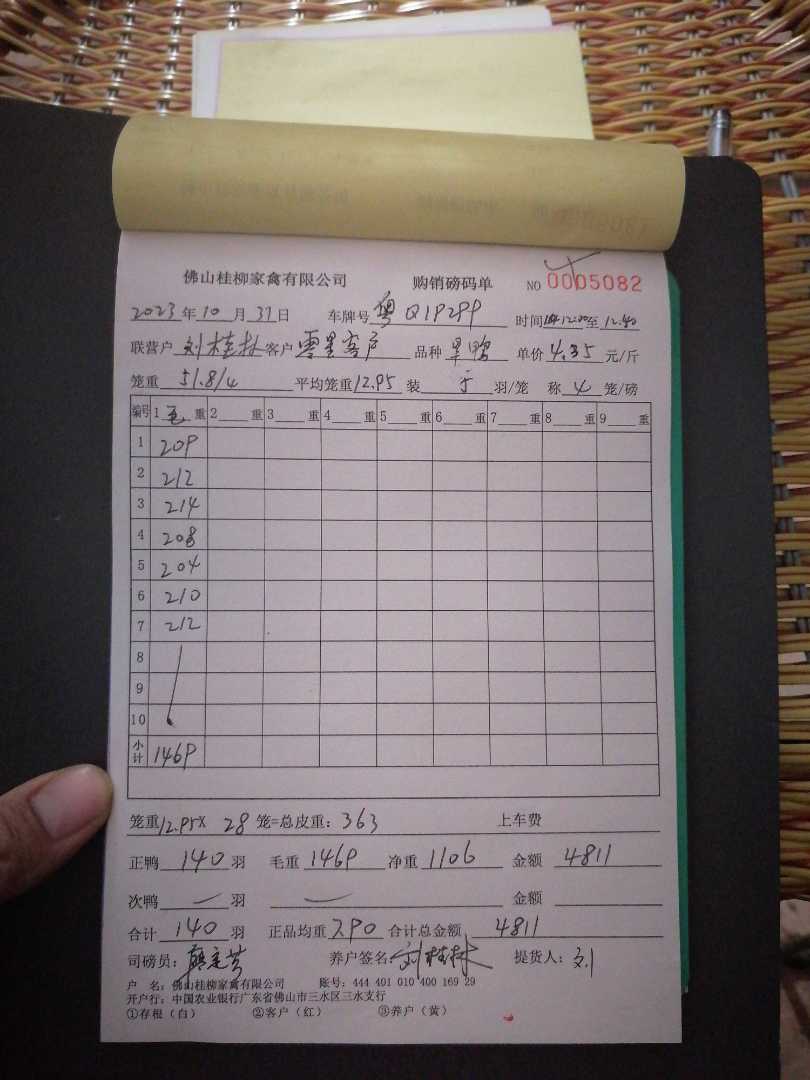 佛山桂柳家禽有限公司 购销磅码单 NO 0005082
2023年10月31日 车牌号 粤Q1P2PP 时间 12:20至12:40
联营户 刘桂林 客户 零星客户 品种 旱鸭 单价 4.35 元/斤
笼重 51.8/4 平均笼重 12.95 装 5 羽/笼 称 4 笼/磅
编号 1 毛 重 2 重 3 重 4 重 5 重 6 重 7 重 8 重 9 重
1 209
2 212
3 214
4 208
5 204
6 210
7 212
8
9
10
小计 1469
笼重 12.95× 28 笼=总皮重: 363 上车费
正鸭 140 羽 毛重 1469 净重 1106 金额 4811
次鸭 — 羽 — 金额
合计 140 羽 正品均重 7.90 合计总金额 4811
司磅员: 养户签名: 刘桂林 提货人: 刘
户 名: 佛山桂柳家禽有限公司 账号: 444 401 010 400 169 29
开户行: 中国农业银行广东省佛山市三水区三水支行
①存根（白） ②客户（红） ③养户（黄）